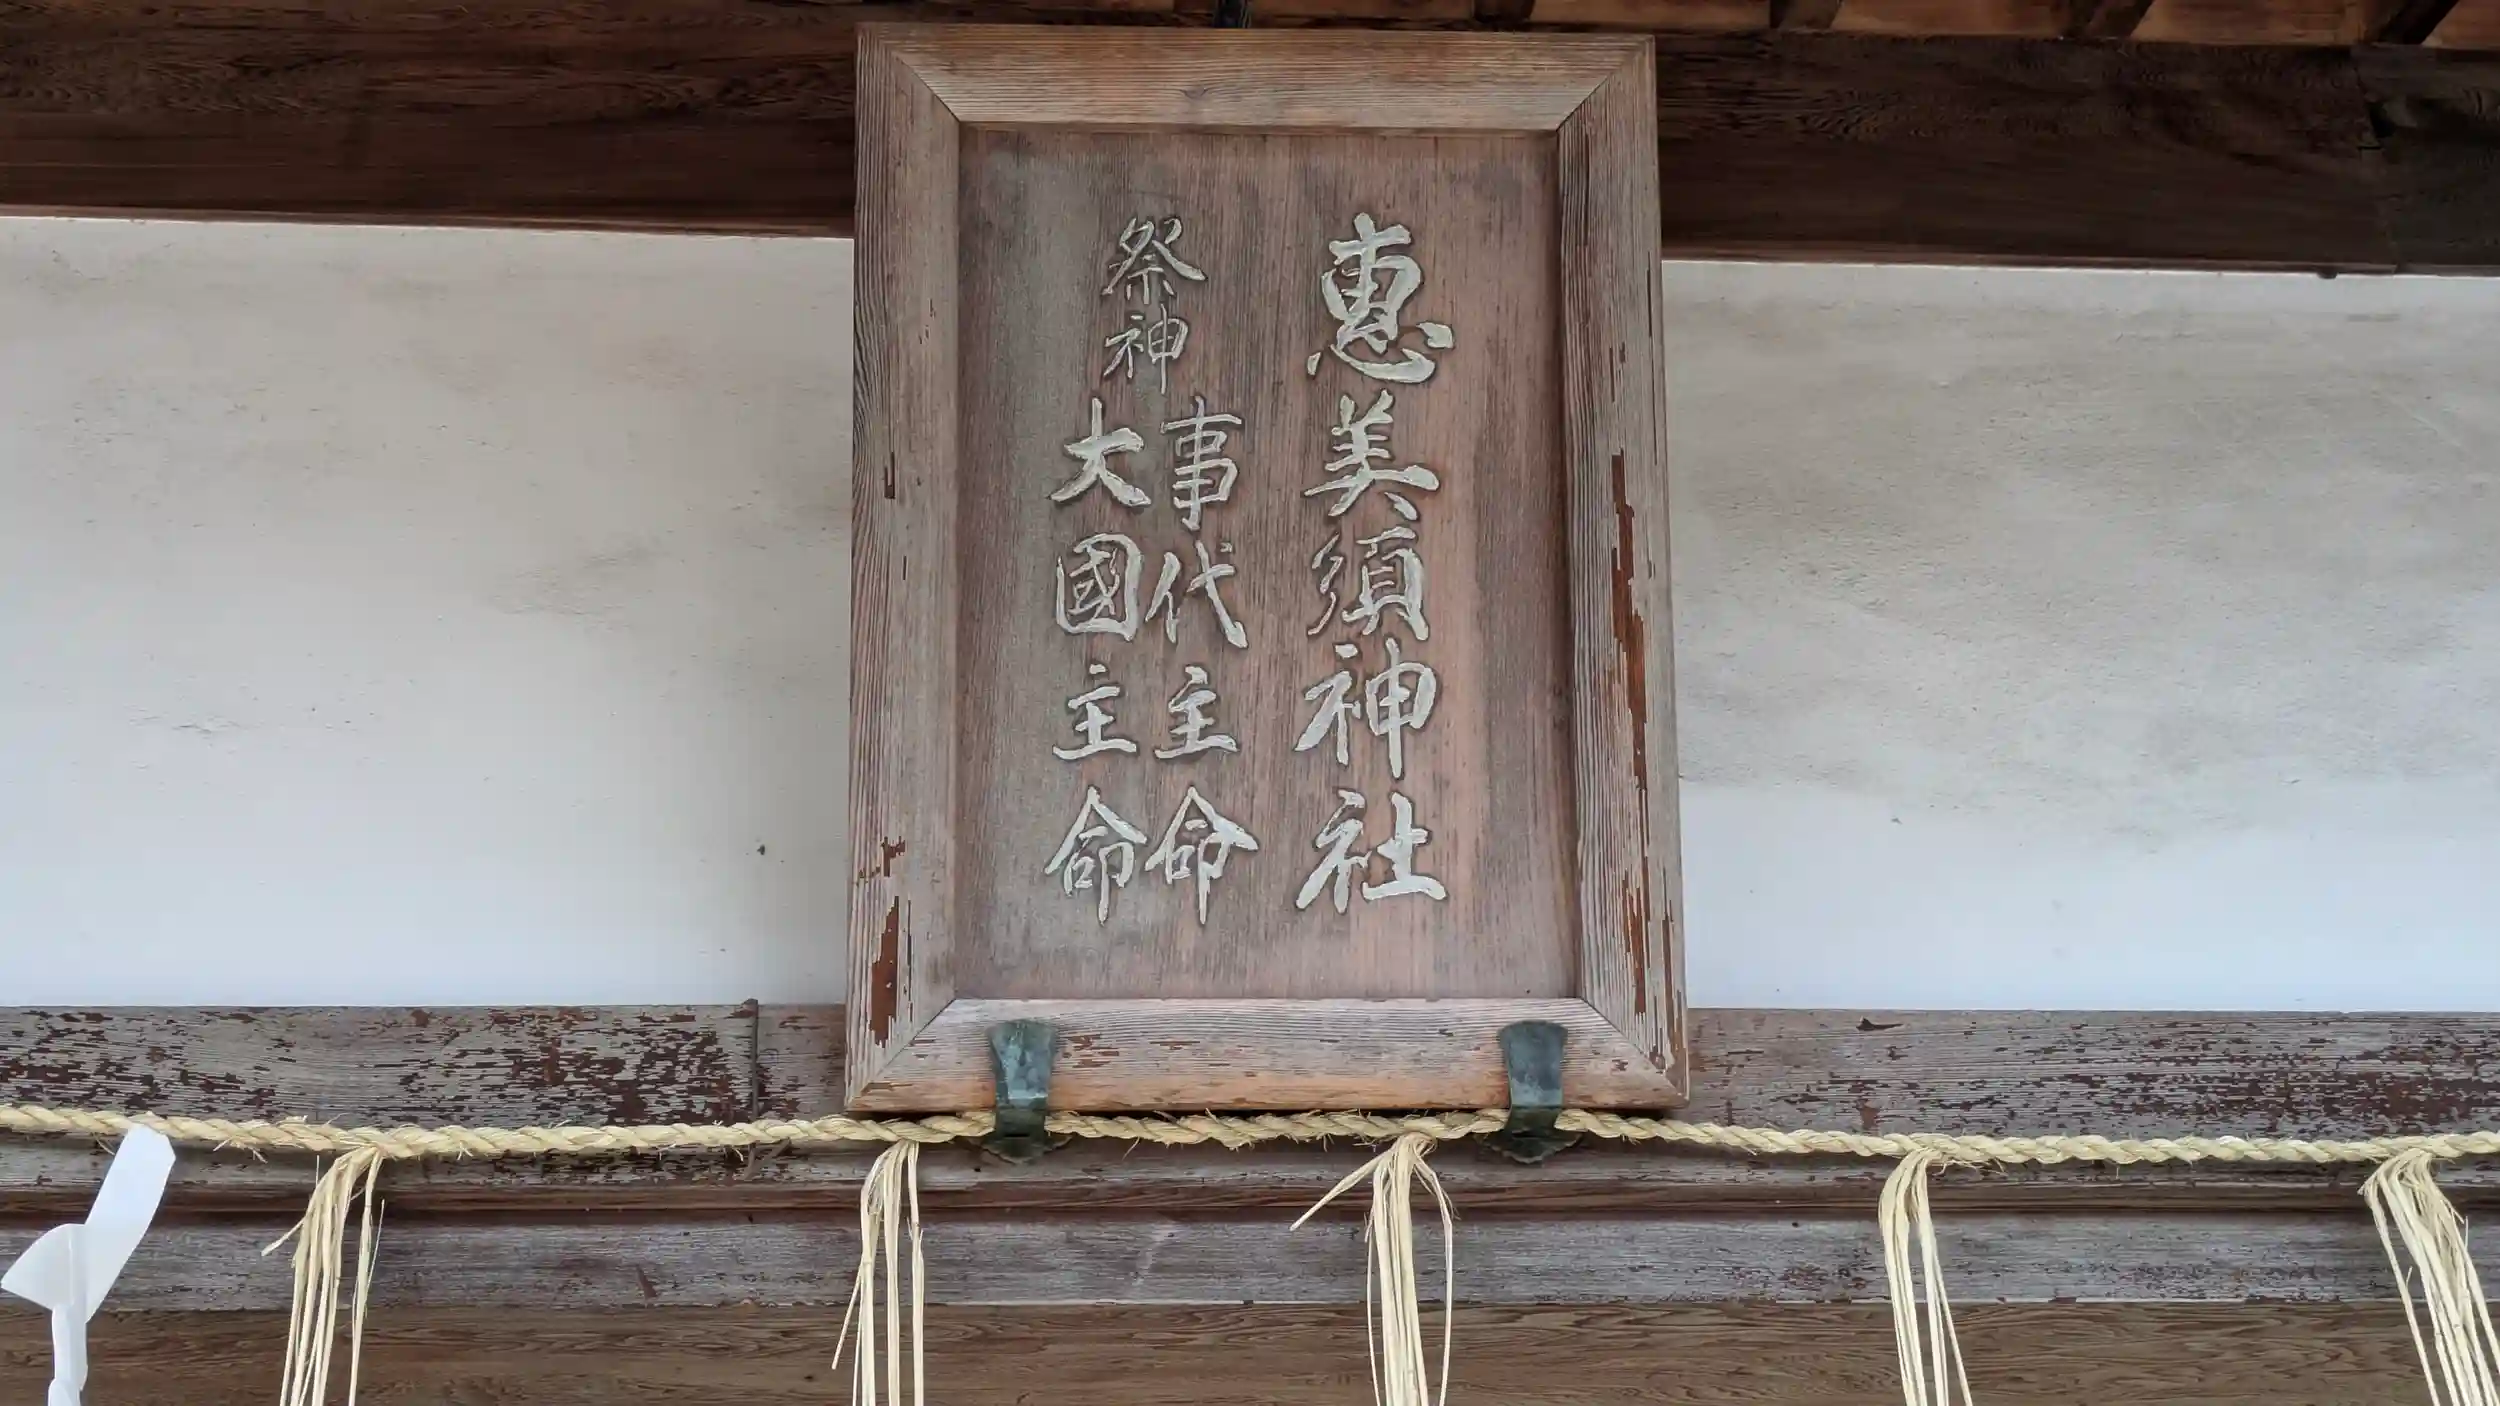 恵美須神社
祭神
事代主命
大國主命